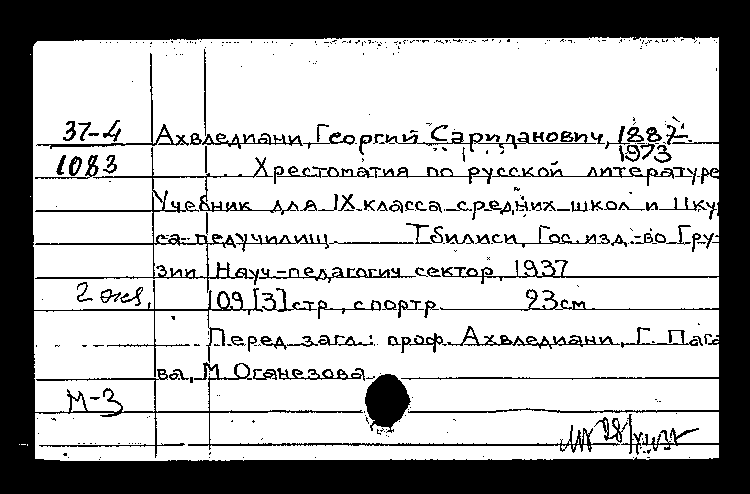 37-4 Ахвледиани, Георгий Сариданович, 1887-
1973
1083 ... Хрестоматия по русской литературе
Учебник для IX класса средних школ и II ку
са педучилищ. Тбилиси, Гос. изд.-во Гру-
зии Науч-педагогич сектор, 1937
2 экз. 109,[3] стр., с портр. 23 см
Перед загл.: проф. Ахвледиани, Г. Пага
ва, М Оганезова
М-3
28/